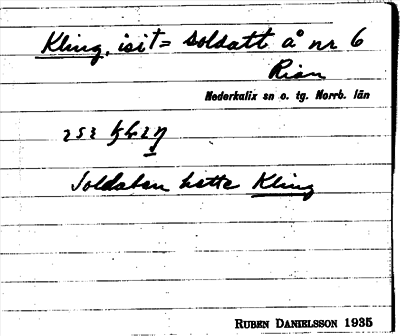 Kling, isit = Soldatt å nr 6
Rian
Nederkalix sn o. tg. Norrb. län
Soldaten hette Kling
RUBEN DANIELSSON 1935